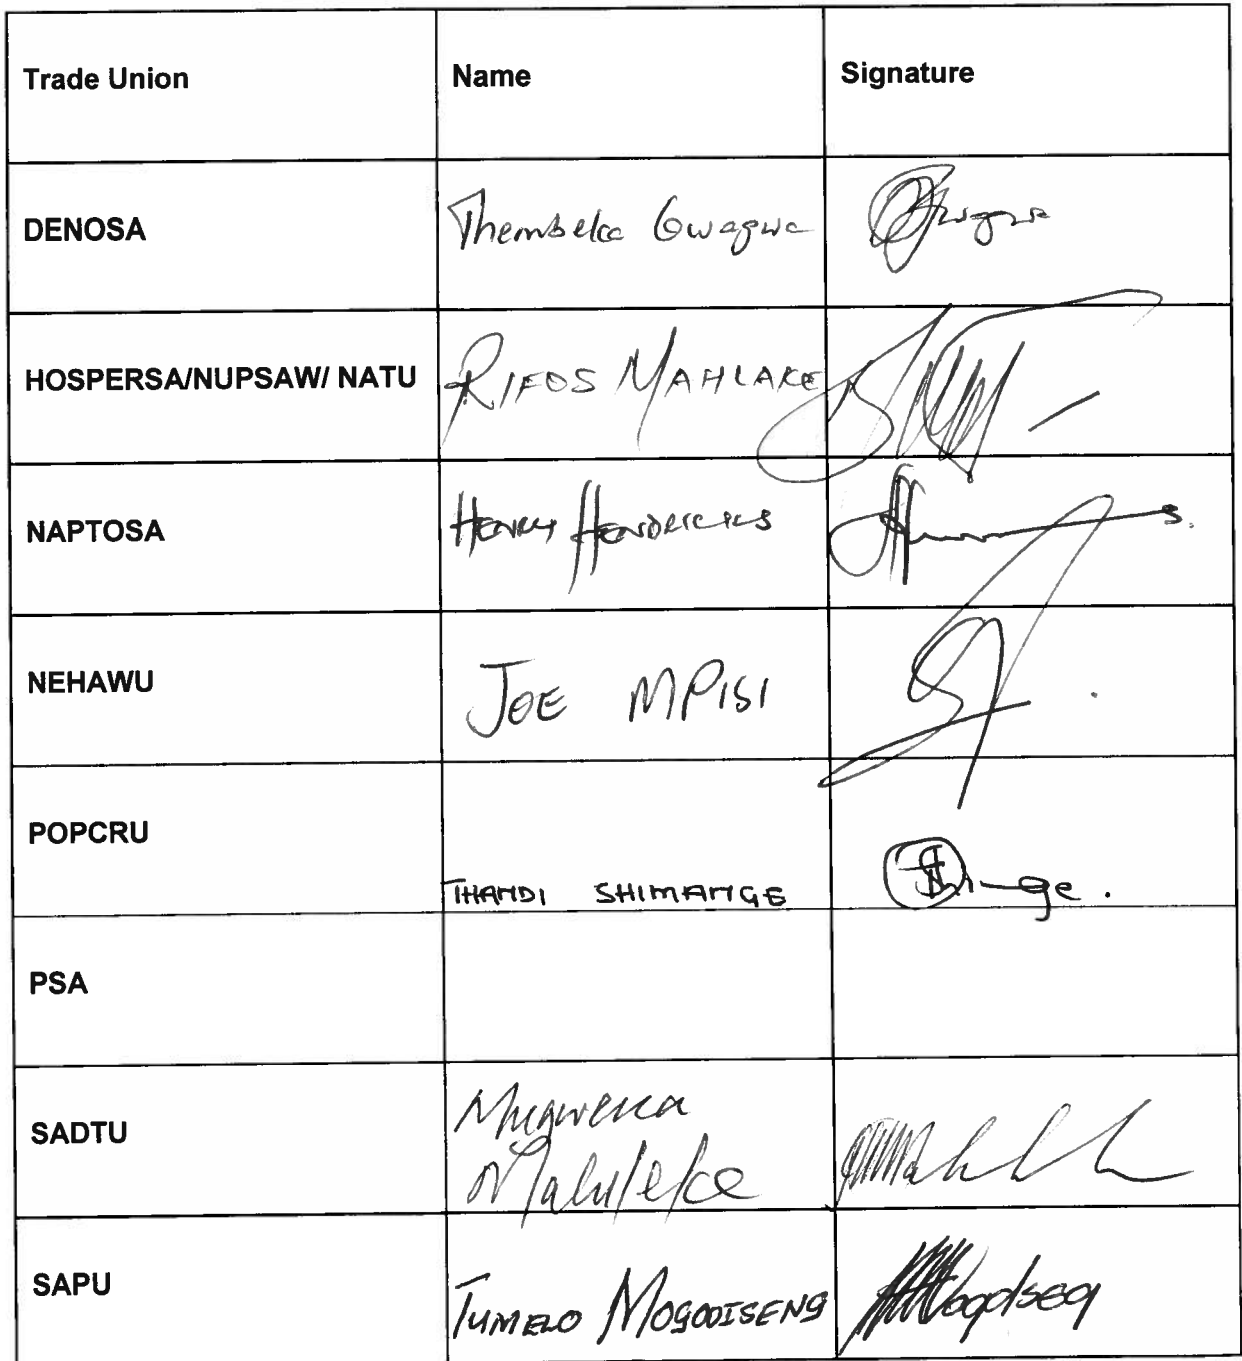 Trade Union Name Signature
DENOSA Thembeka Gwagwa
HOSPERSA/NUPSAW/ NATU RIFOS MAHLAKE
NAPTOSA HENRY HENDRICKS
NEHAWU JOE MPISI
POPCRU
THANDI SHIMANGE
PSA
SADTU Mugwena
Maluleke
SAPU TUMELO MOGODISENG